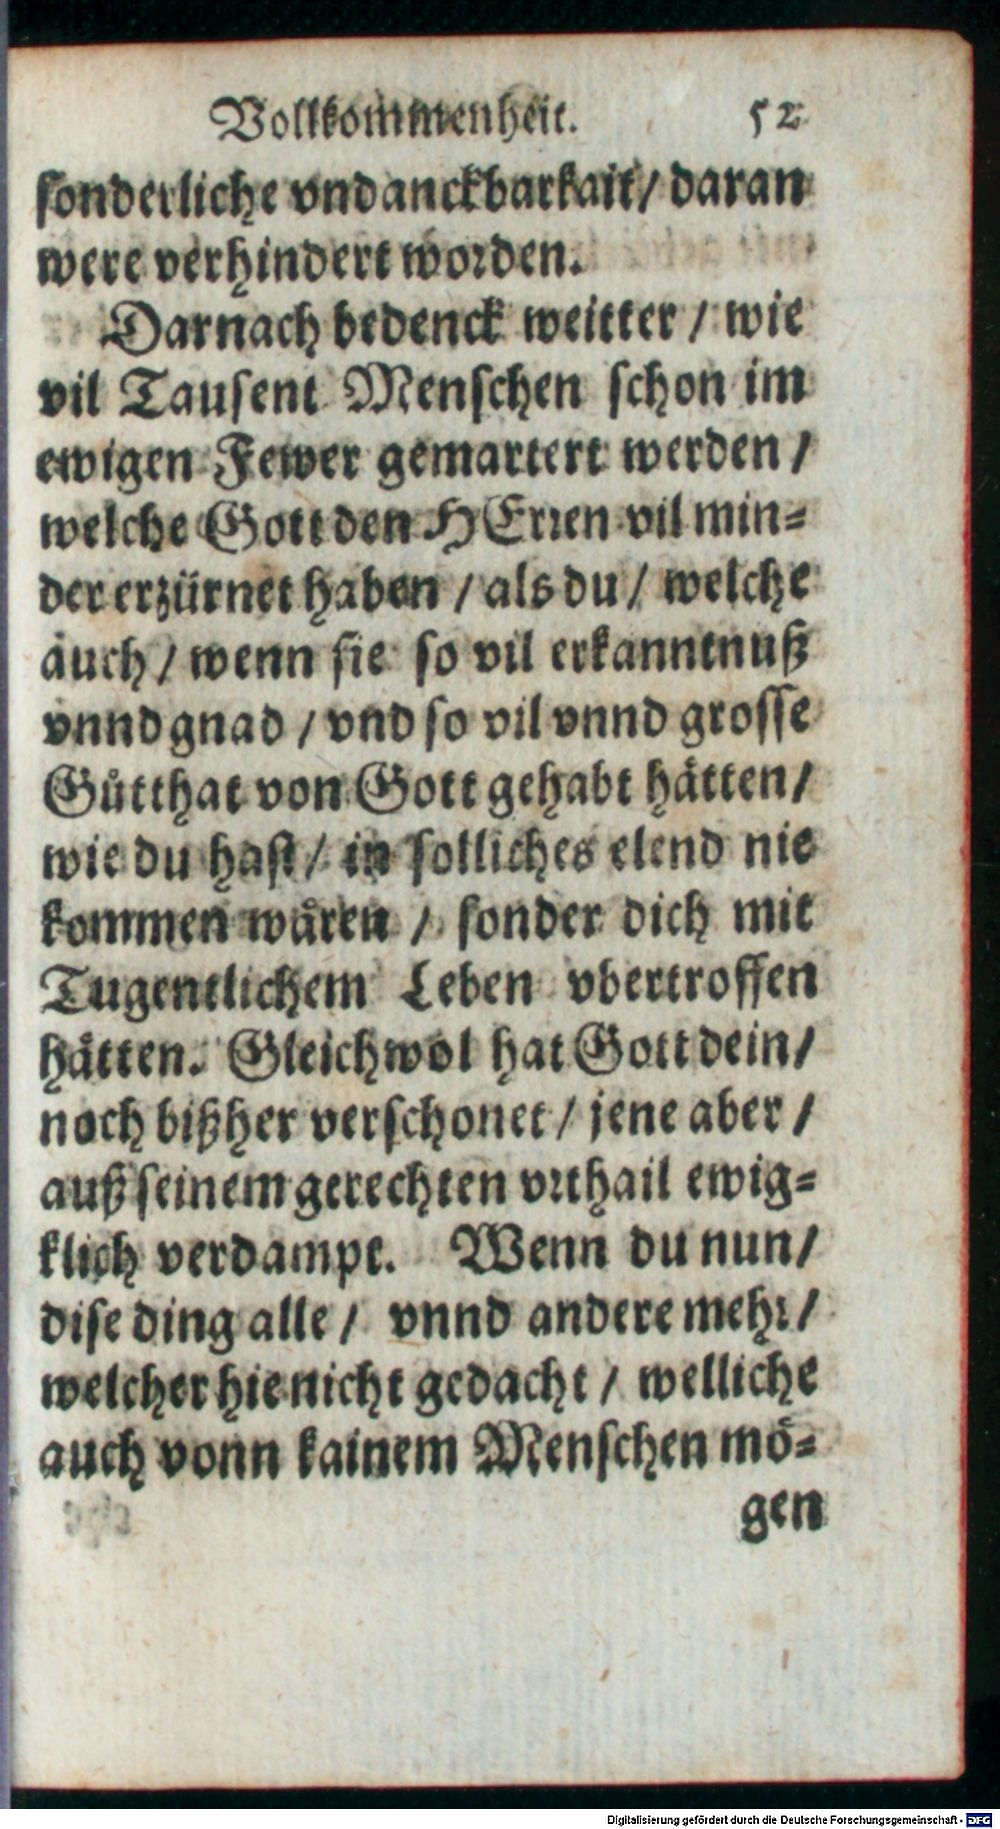 Vollkommenheit. 52
sonderliche vndanckbarkait/ daran
were verhindert worden.
Darnach bedenck weitter / wie
vil Tausent Menschen schon im
ewigen Fewer gemartert werden /
welche Gott den HErren vil min-
der erzürnet haben / als du / welche
auch / wenn sie so vil erkanntnuß
vnnd gnad / vnd so vil vnnd grosse
Gůtthat von Gott gehabt hätten/
wie du hast / in solliches elend nie
kommen wären / sonder dich mit
Tugentlichem Leben vbertroffen
hätten. Gleichwol hat Gott dein/
noch bißher verschonet / jene aber /
auß seinem gerechten vrthail ewig-
klich verdampt. Wenn du nun/
dise ding alle / vnnd andere mehr /
welcher hie nicht gedacht / welliche
auch vonn kainem Menschen mö-
gen
Digitalisierung gefördert durch die Deutsche Forschungsgemeinschaft - DFG